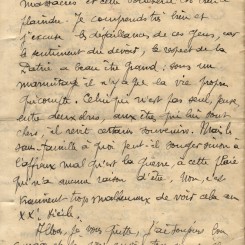 massacres et cette
plaindu. Je comprends très bien et
j'excuse les défaillances de ces gens, car
le sentiment du devoir, le respect de la
Patrie a beau être grand ; sous un
marmitage il n'y a que la vie propre
qui compte. Celui qui n'est pas seul, pense
entre deux obus, aux êtres qui lui sont
chers, il revit certains souvenirs. Mais le
sans-famille à quoi peut-il songer sinon à
l'affreux mal qu'est la guerre, à cette plaie
qui n'a aucune raison d'être. Non, c'est
vraiment trop malheureux de voir cela au
XX e siècle.
Alors, je vous quitte, j'ai toujours bon